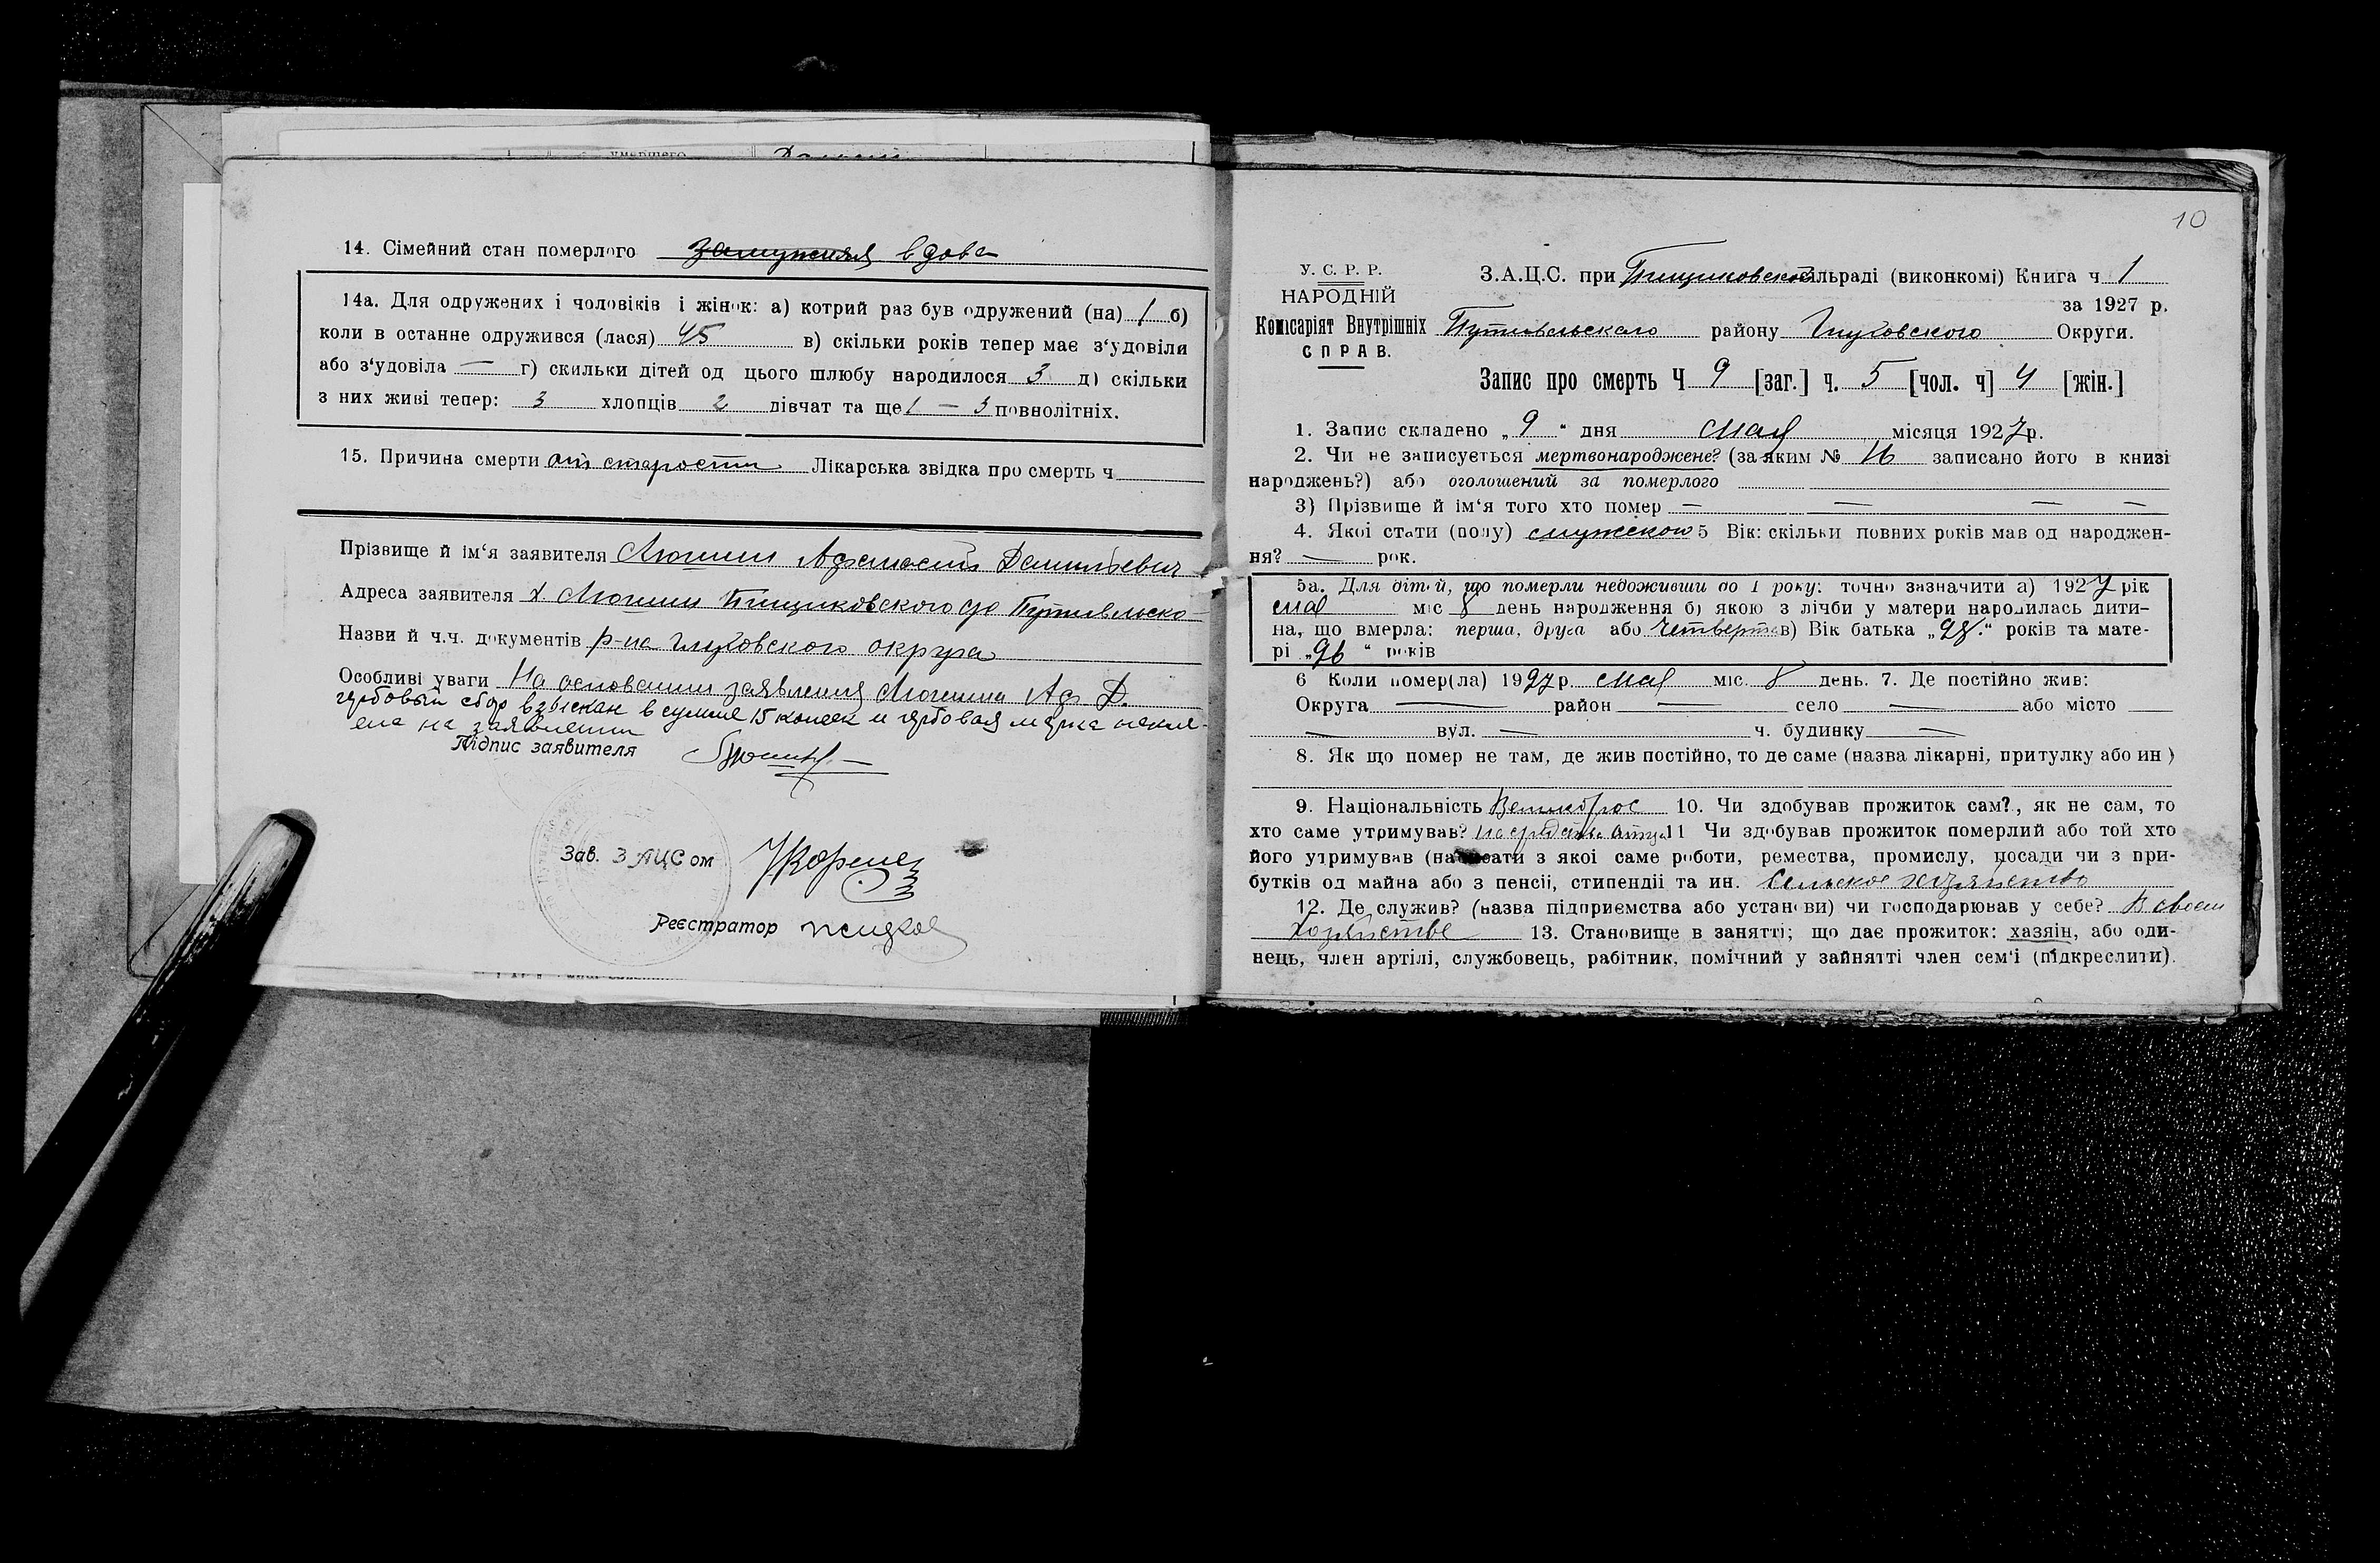 умершего
14. Сімейний стан померлого замужняя вдова
14а. Для одружених і чоловіків і жінок: а) котрий раз був одружений (на) 1 б)
коли в останне одружився (лася) 45 в) скільки років тепер має з'удовіли
або з'удовіла — г) скильки дітей од цього шлюбу народилося 3 д) скільки
з них живі тепер: 3 хлопців 2 дівчат та ще 1 — 3 повнолітніх.
15. Причина смерти от старости Лікарська звідка про смерть ч
Прізвище й ім'я заявителя Аношин Афанасий Данильевич
Адреса заявителя х. Аношин Пищиковского с/с Путивльско-
Назви й ч.ч. документів р-на Глуховского округа
Особливі уваги На основании заявления Аф. Д.
гербовый сбор взыскан в сумме 15 копеек и гербовая марка накле-
ена на заявлении
Підпис заявителя
Зав. ЗАЦСом
Реєстратор
10
У. С. Р. Р.
НАРОДНІЙ
Комісаріят Внутрішніх
СПРАВ.
З.А.Ц.С. при Пищиковской сільраді (виконкомі) Книга ч 1
за 1927 р.
Путивльского району Глуховского Округи.
Запис про смерть Ч 9 [заг.] ч. 5 [чол. ч] 4 [жін.]
1. Запис складено „9" дня мая місяця 1927 р.
2. Чи не записується мертвонароджене? (за яким № 16 записано його в книзі
народжень?) або оголошений за померлого
3) Прізвище й ім'я того хто помер — — — —
4. Якоі стати (полу) мужского 5 Вік: скільки повних років мав од народжен-
ня? — рок.
5а. Для дітей, що померли недоживши до 1 року: точно зазначити а) 1927 рік
мая міс 8 день народження б) якою з лічби у матери народилась дити-
на, що вмерла: перша, друга або четвертая в) Вік батька „28." років та мате-
рі „26" років
6 Коли помер(ла) 1927 р. мая міс. 8 день. 7. Де постійно жив:
Округа — район — село — або місто —
— вул. — ч. будинку —
8. Як що помер не там, де жив постійно, то де саме (назва лікарні, притулку або ин)
9. Національність Великорос 10. Чи здобував прожиток сам?, як не сам, то
хто саме утримував? на средства отца 11 Чи здобував прожиток померлий або той хто
його утримував (написати з якоі саме роботи, ремества, промислу, посади чи з при-
бутків од майна або з пенсіі, стипендіі та ин. Сельское хозяйство
12. Де служив? (назва підприємства або установи) чи господарював у себе? В своем
хозяйстве 13. Становище в занятті; що дає прожиток: хазяін, або оди-
нець, член артілі, службовець, рабітник, помічний у зайнятті член сем'і (підкреслити).